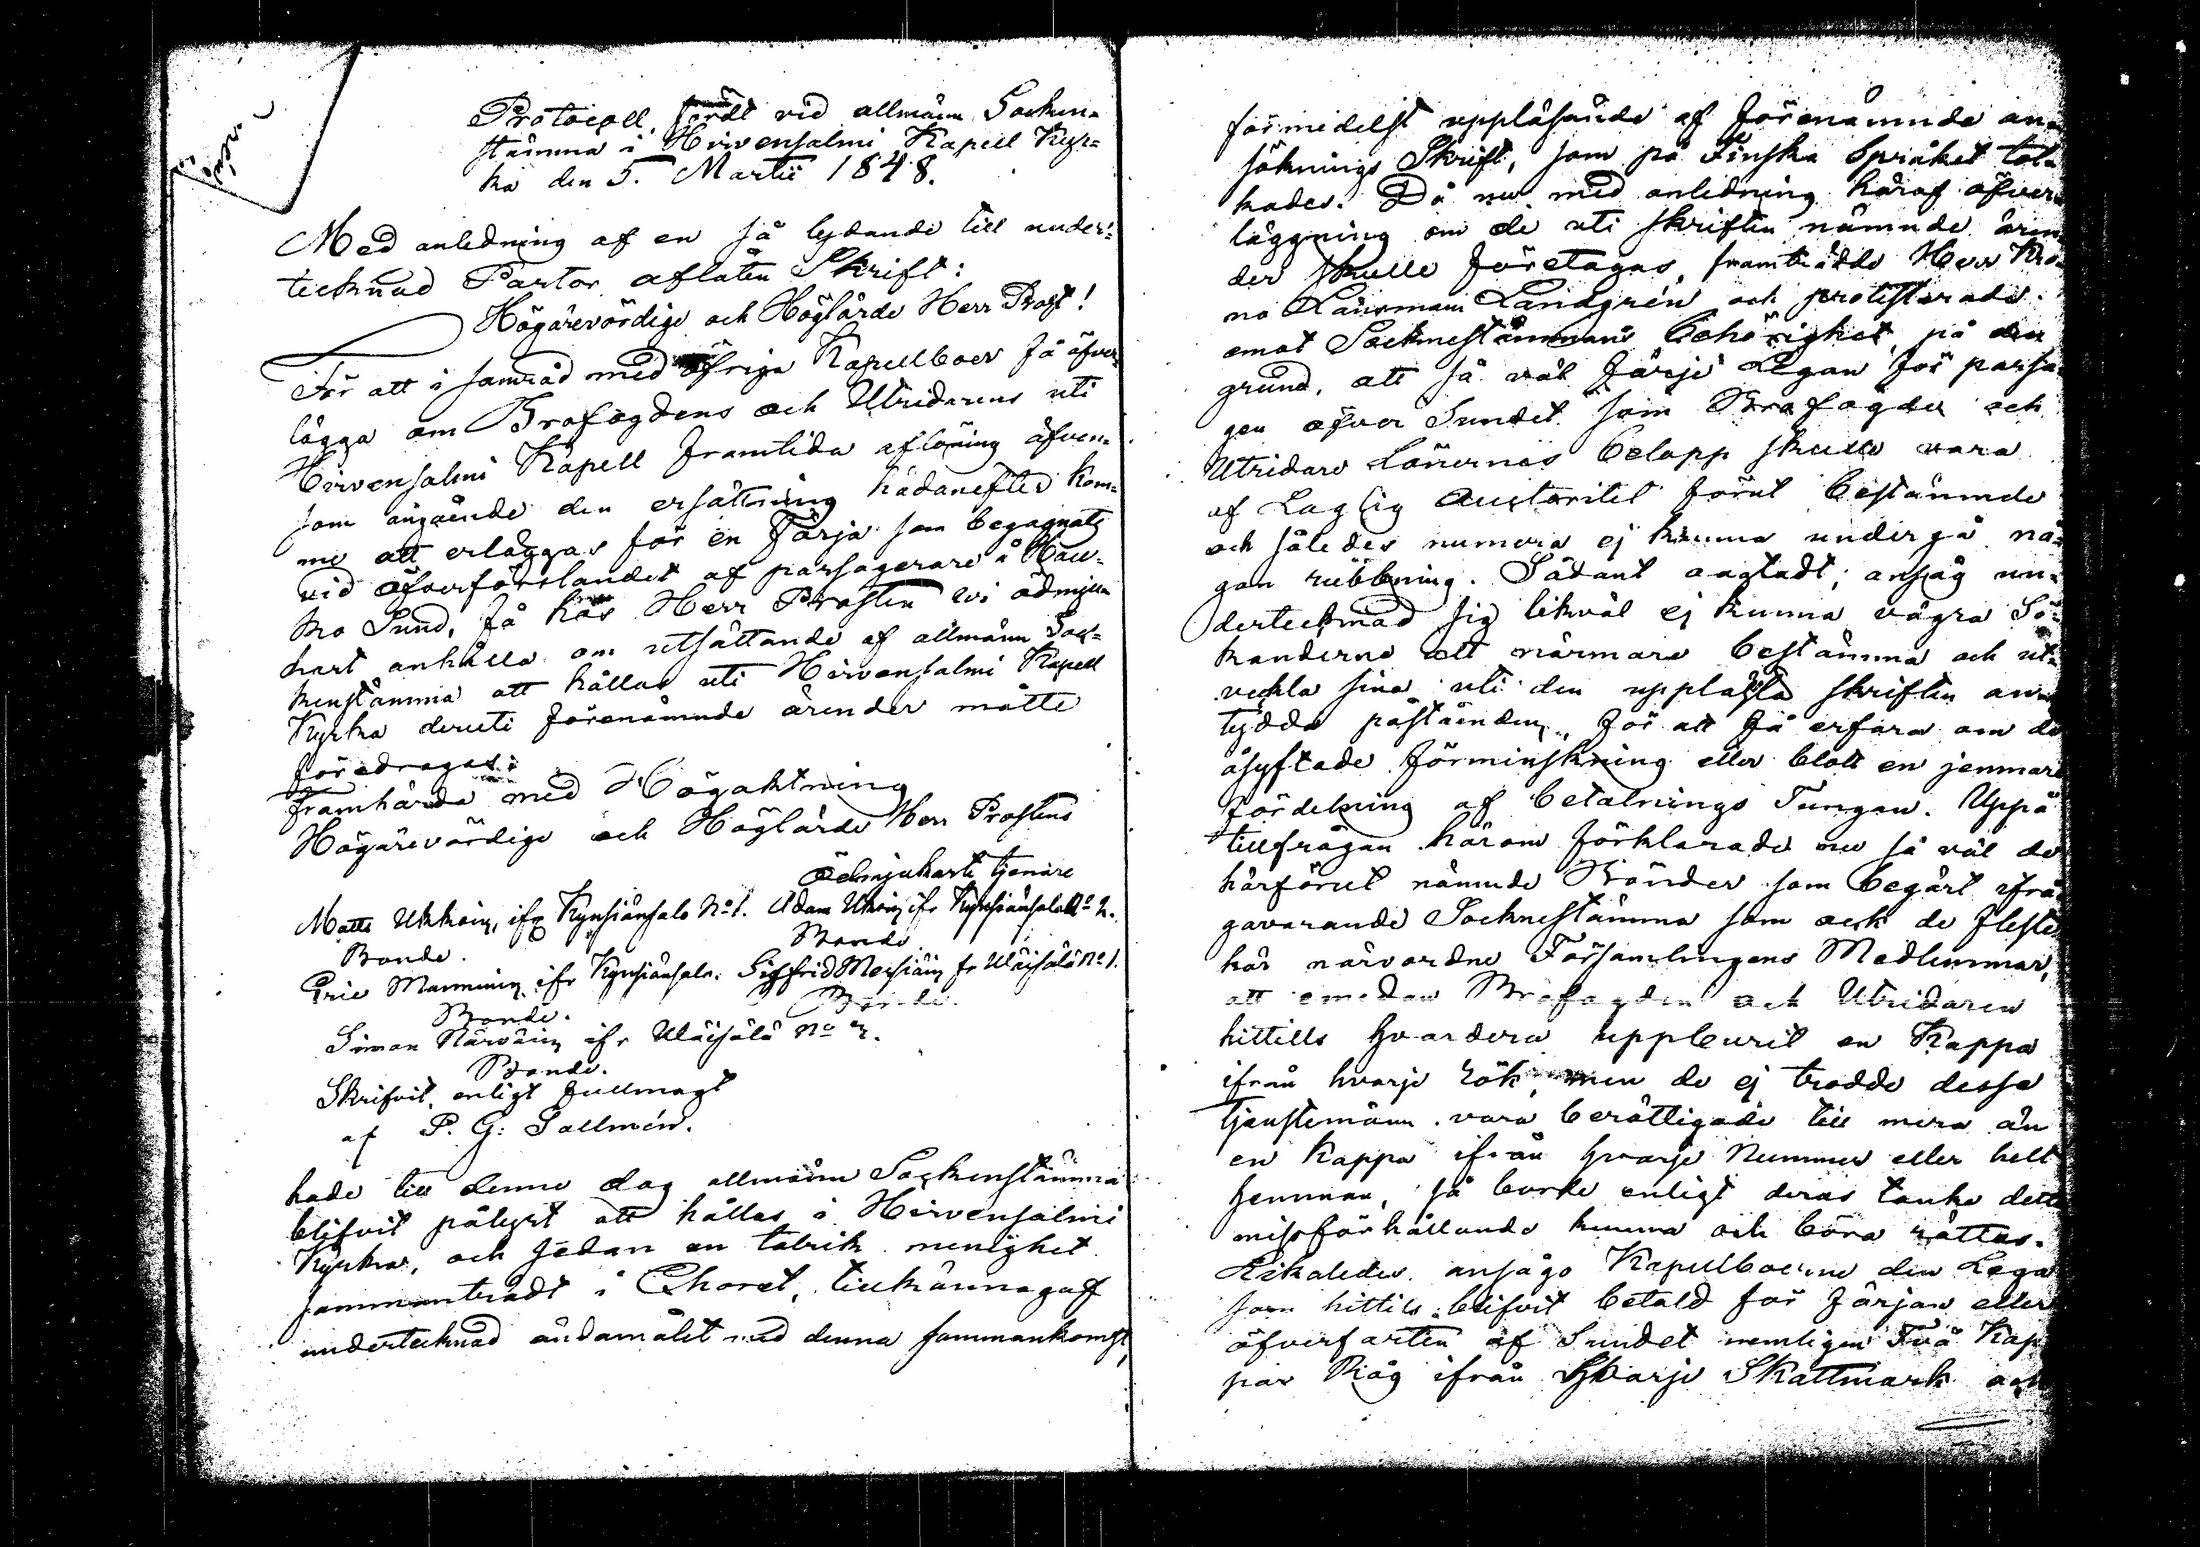 Protocoll fördt vid allmän Socken-
stämma i Hirvensalmi Kapell Kyr-
ka den 5. Martii 1848.
Med anledning af en så lydande till under-
tecknad Pastor aflåten Skrift:
Högärevördige och Höglärde Herr Prost!
För att i samråd med öfriga Kapellboer få öfver-
lägga om Brofogdens och Utridarens uti
Hirvensalmi Kapell framtida aflöning äfven-
som angående den ersättning hädanefter kom-
me att erläggas för en Färja som begagnats
vid öfverförslandet af passagerare å Hau-
ko Sund, få hos Herr Prosten vi ödmju-
kast anhålla om utsättande af allmän Soc-
kenstämma att hållas uti Hirvensalmi Kapell
Kyrka deruti förenämnde ärender måtte
föredragas:
framhärda med Högaktning
Högärevördige och Höglärde Herr Prostens
Ödmjukaste tjenare
Matts Ukkoin, ifr Kynsiänsalo No 1. Adam Ukkoin ifr Kynsiänsalo No 2.
Bonde. Bonde
Eric Manninen ifr Kynsiänsalo. Sigfrid Mersiäin fr Wäisälä No 1.
Bonde. Bonde.
Simon Närväin ifr Wäisälä No 2.
Bonde.
Skrifvit, enligt fullmagt
af P. G: Sallmén.
hade till denne dag allmän Sockenstämma
blifvit pålyst att hållas i Hirvensalmi
Kyrka, och sedan en talrik menighet
sammanträdt i Choret, tillkännagaf
undertecknad ändamålet med denna sammankomst,
förmedelst uppläsande af förenämnde an-
söknings Skrift, som på Finska Språket tol-
kades. Då nu med anledning häraf öfver-
läggning om de uti skriften nämnde ären-
der skulle företagas, framträdde Herr Kro-
no Länsman Landgrén och protesterade
emot Socknestämmans behörighet, på den
grund, att så väl Färje Legan för passa-
gen öfver Sundet som Brofogde och
Utridare Lönernas belopp skulle vara
af Laglig Auctoritet förut bestämde
och således numera ej kunna undergå nå-
gon rubbning. Sådant agtadt, ansåg un-
dertecknad sig likväl ej kunna vägra Sö-
kanderne att närmare bestämma och ut-
veckla sina uti den upplästa skriften an-
tydda påståenden, för att få erfara om de
åsyftade förminskning eller blott en jemnare
fördelning af betalnings Tungan. Uppå
tillfrågan härom förklarade nu så väl de
härförut nämnde Bönder som begärt ifrå-
gavarande Socknestämma som ock de fleste
här närvardne Församlingens Medlemmar,
att emedan Brofogden och Utridaren
hittills hvardera uppburit en Kappa
ifrån hvarje rök, men de ej trodde desse
tjenstemän vara berättigade till mera än
en Kappa ifrån hvarje Nummer eller helt
hemman, så borde enligt deras tanke dett
missförhållande kunna och böra rättas.
Likaledes ansågo Kapellboerne den Lega
som hittils blifvit betald för färjan eller
öfverfarten af Sundet nemligen Två Kap-
par Råg ifrån Hvarje Skattmark och